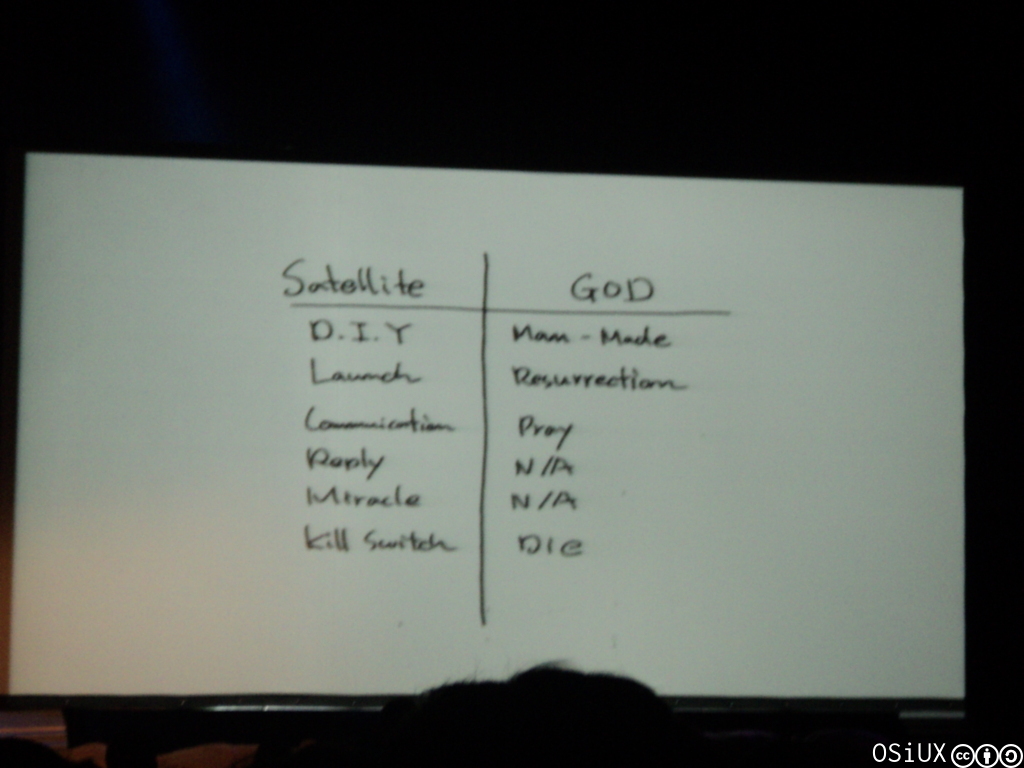 Satellite GOD
D.I.Y Man-Made
Launch Resurrection
Communication Pray
Reply N/A
Miracle N/A
Kill Switch Die
OSiUX